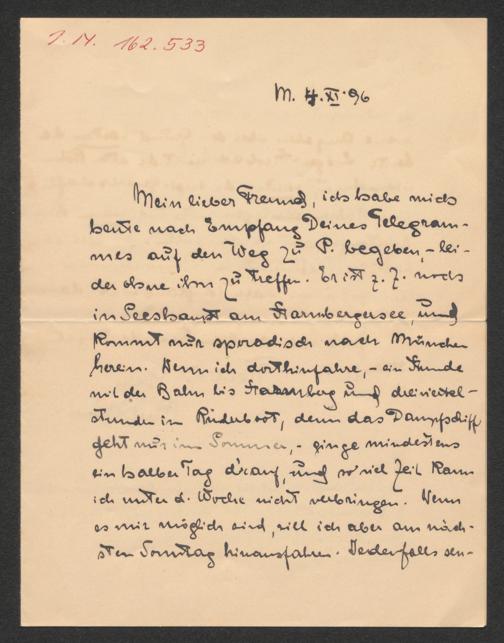 J. N. 162.533
M. 4.XI.96
Mein lieber Freund, ich habe mich
heute nach Empfang Deines Telegram-
mes auf den Weg zu P. begeben, - lei-
der ohne ihn zu treffen. Er ist z. Z. noch
in Seeshaupt am Starnbergersee, und
kommt nur sporadisch nach München
herein. Wenn ich dorthinfahre, - ein Stunde
mit der Bahn bis Starnberg und dreiviertel-
stunden im Ruderboot, denn das Dampfschiff
geht nur im Sommer, - ginge mindestens
ein halber Tag d'rauf, und so viel Zeit kann
ich unter d. Woche nicht verbringen. Wenn
es mir möglich wird, will ich aber am näch-
sten Sonntag hinausfahren. Jedenfalls sen-